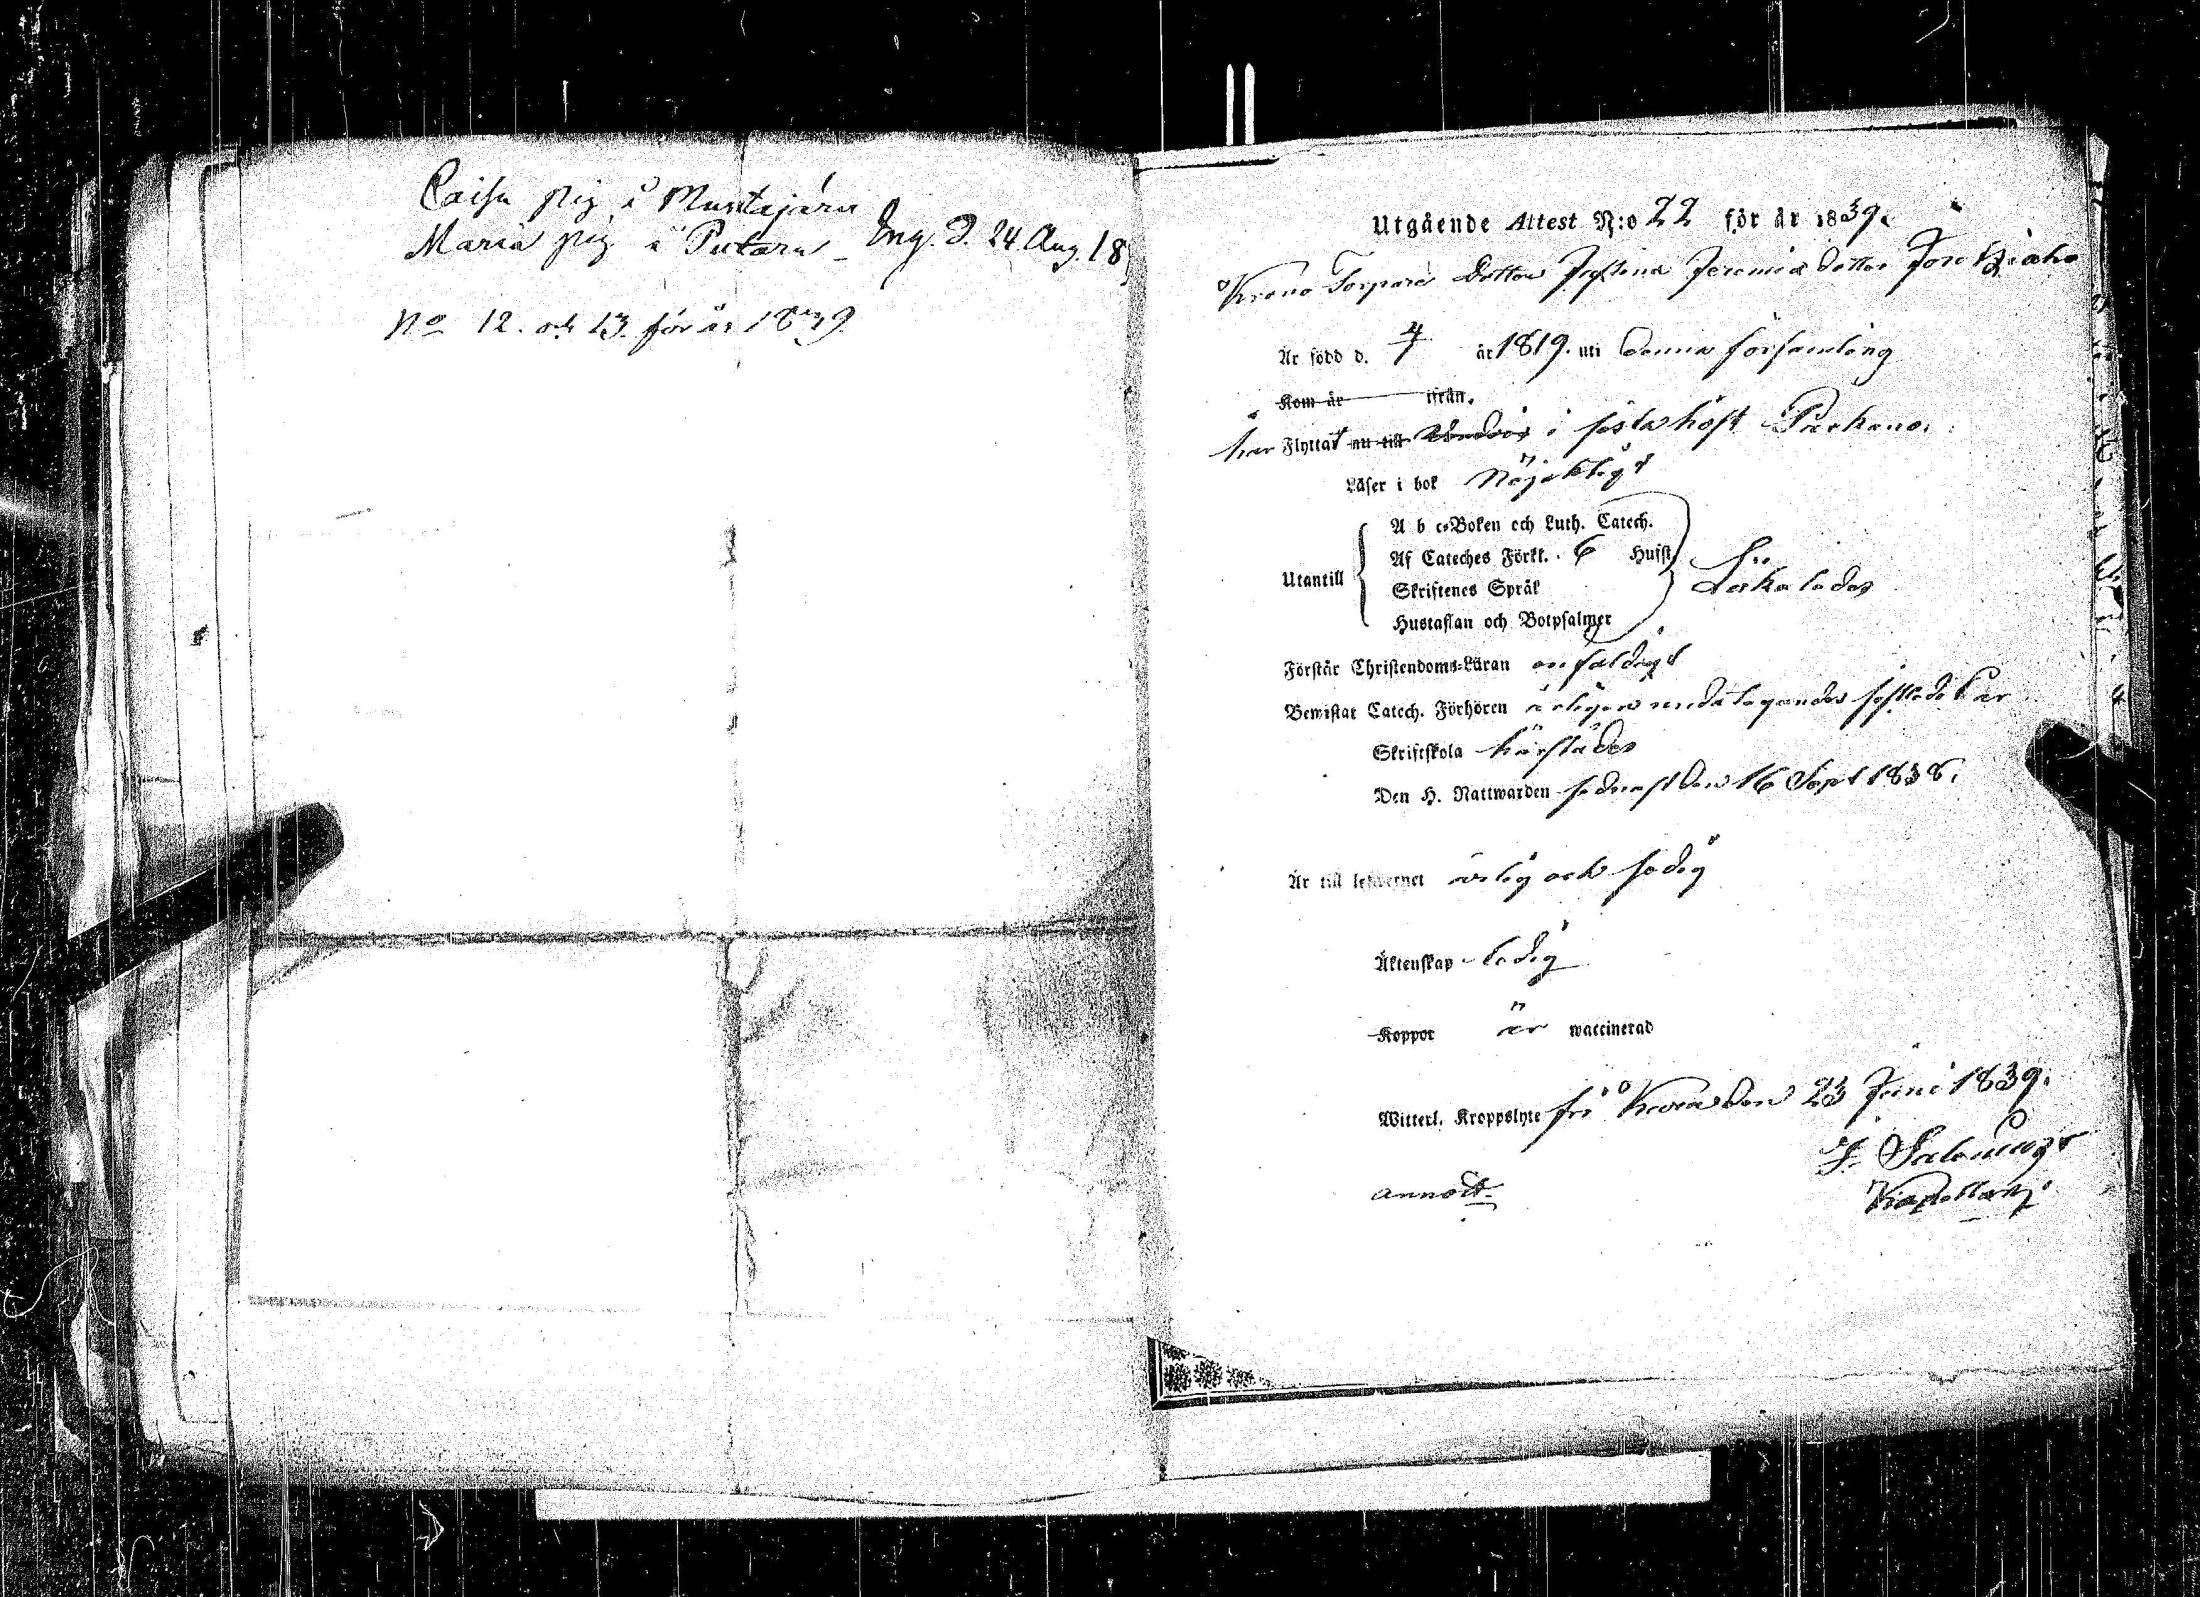 Caisa pig å Mustajärvi
Maria pig å Putaru - Ing. d. 24 Aug. 18
No 12. och 13. för år 1839
Utgående Attest N:o 22 för år 1839.
Krono Torpare Dotter Justina Jeremiæ Dotter
Är född d. 4/7 år 1819. uti denna församling
Kom år ifrån.
har Flyttat nu till i sista höst Parkano.
Läser i bok nöjaktigt
Utantill
A b c-Boken och Luth. Catech.
Af Cateches Förkl. 6 Hufst.
Skriftenes Språk
Hustaflan och Botpsalmer
Förstår Christendoms-Läran enfaldigt
Bewistat Catech. Förhören årligen
Skriftskola härstädes
Den H. Nattwarden sednast den 16 Sept 1838.
Är till lefwernet ärlig och sedig
Äktenskap ledig
Koppor är waccinerad
Witterl. Kroppslyte fri den 23 Juni 1839.